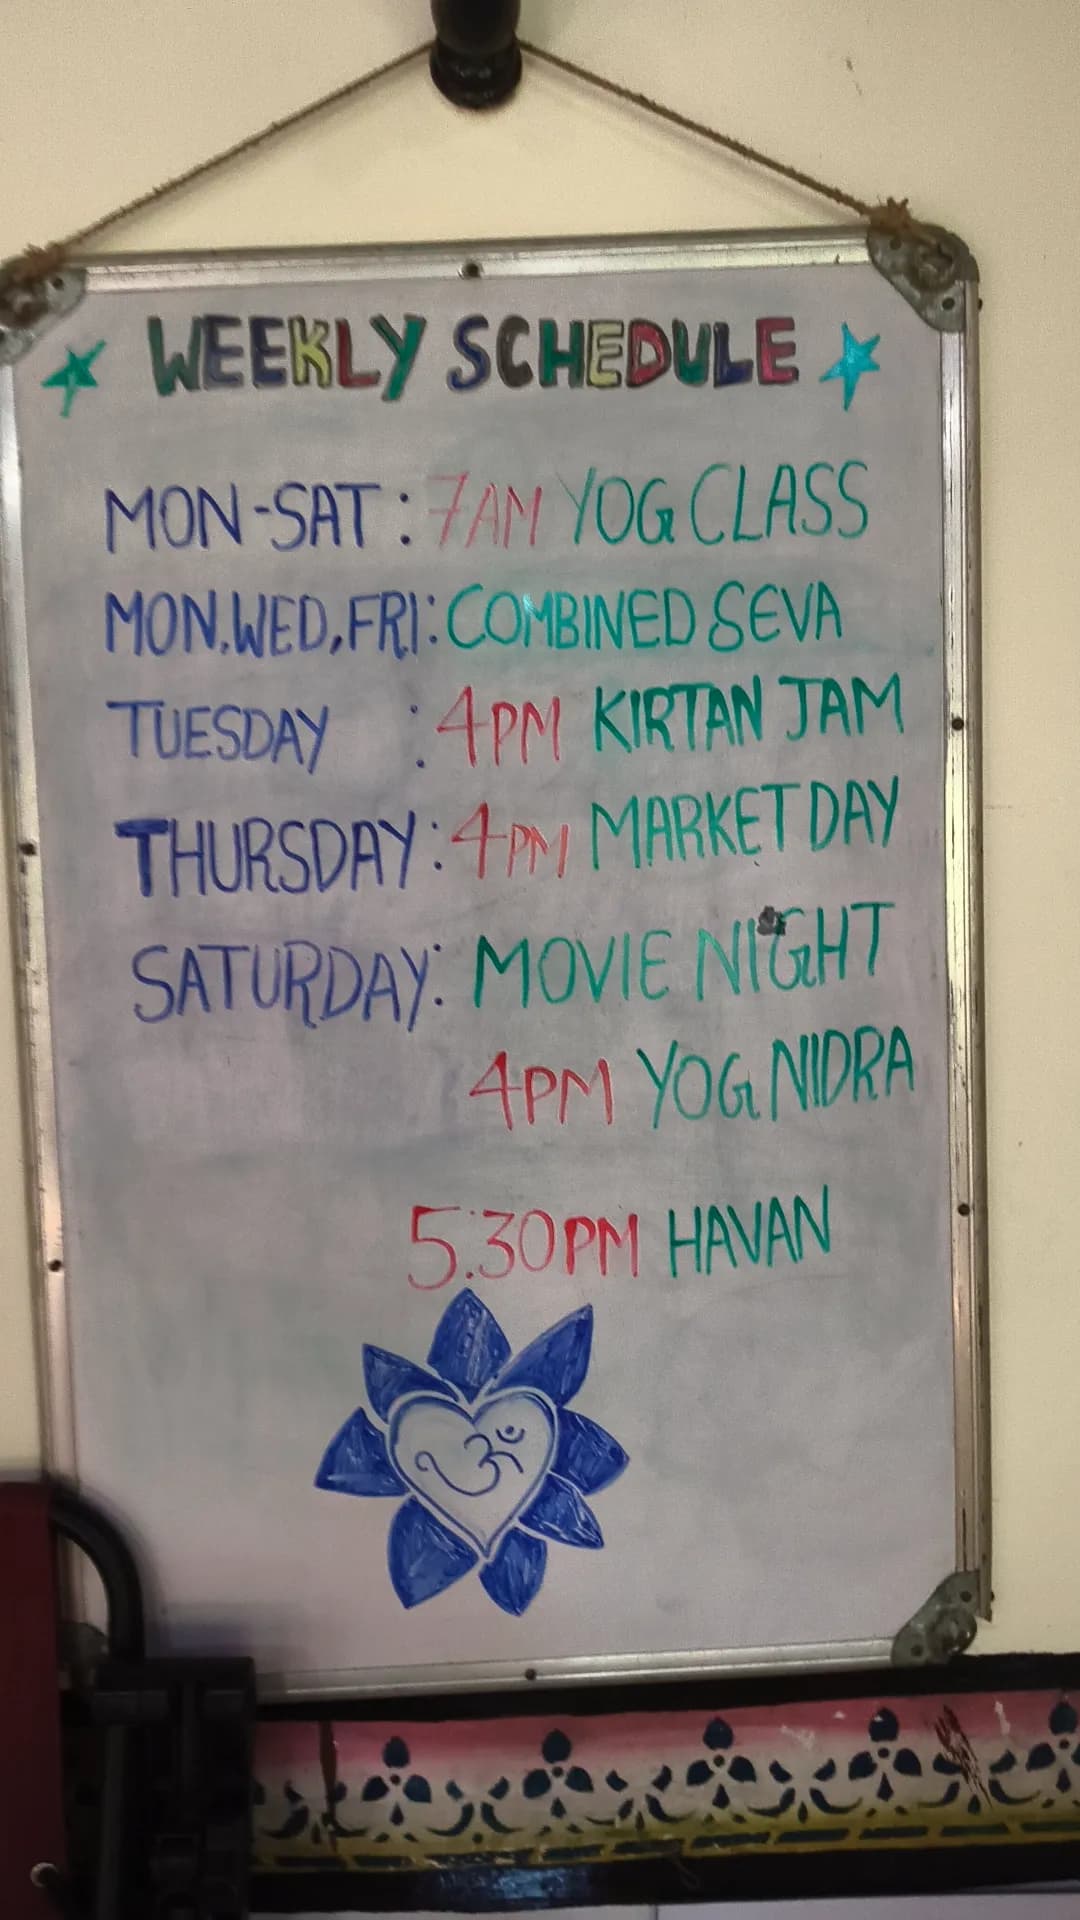 WEEKLY SCHEDULE
MON-SAT : 7AM YOG CLASS
MON.WED,FRI: COMBINED SEVA
TUESDAY : 4PM KIRTAN JAM
THURSDAY: 4PM MARKET DAY
SATURDAY: MOVIE NIGHT
4PM YOG NIDRA
5:30PM HAVAN
ॐ